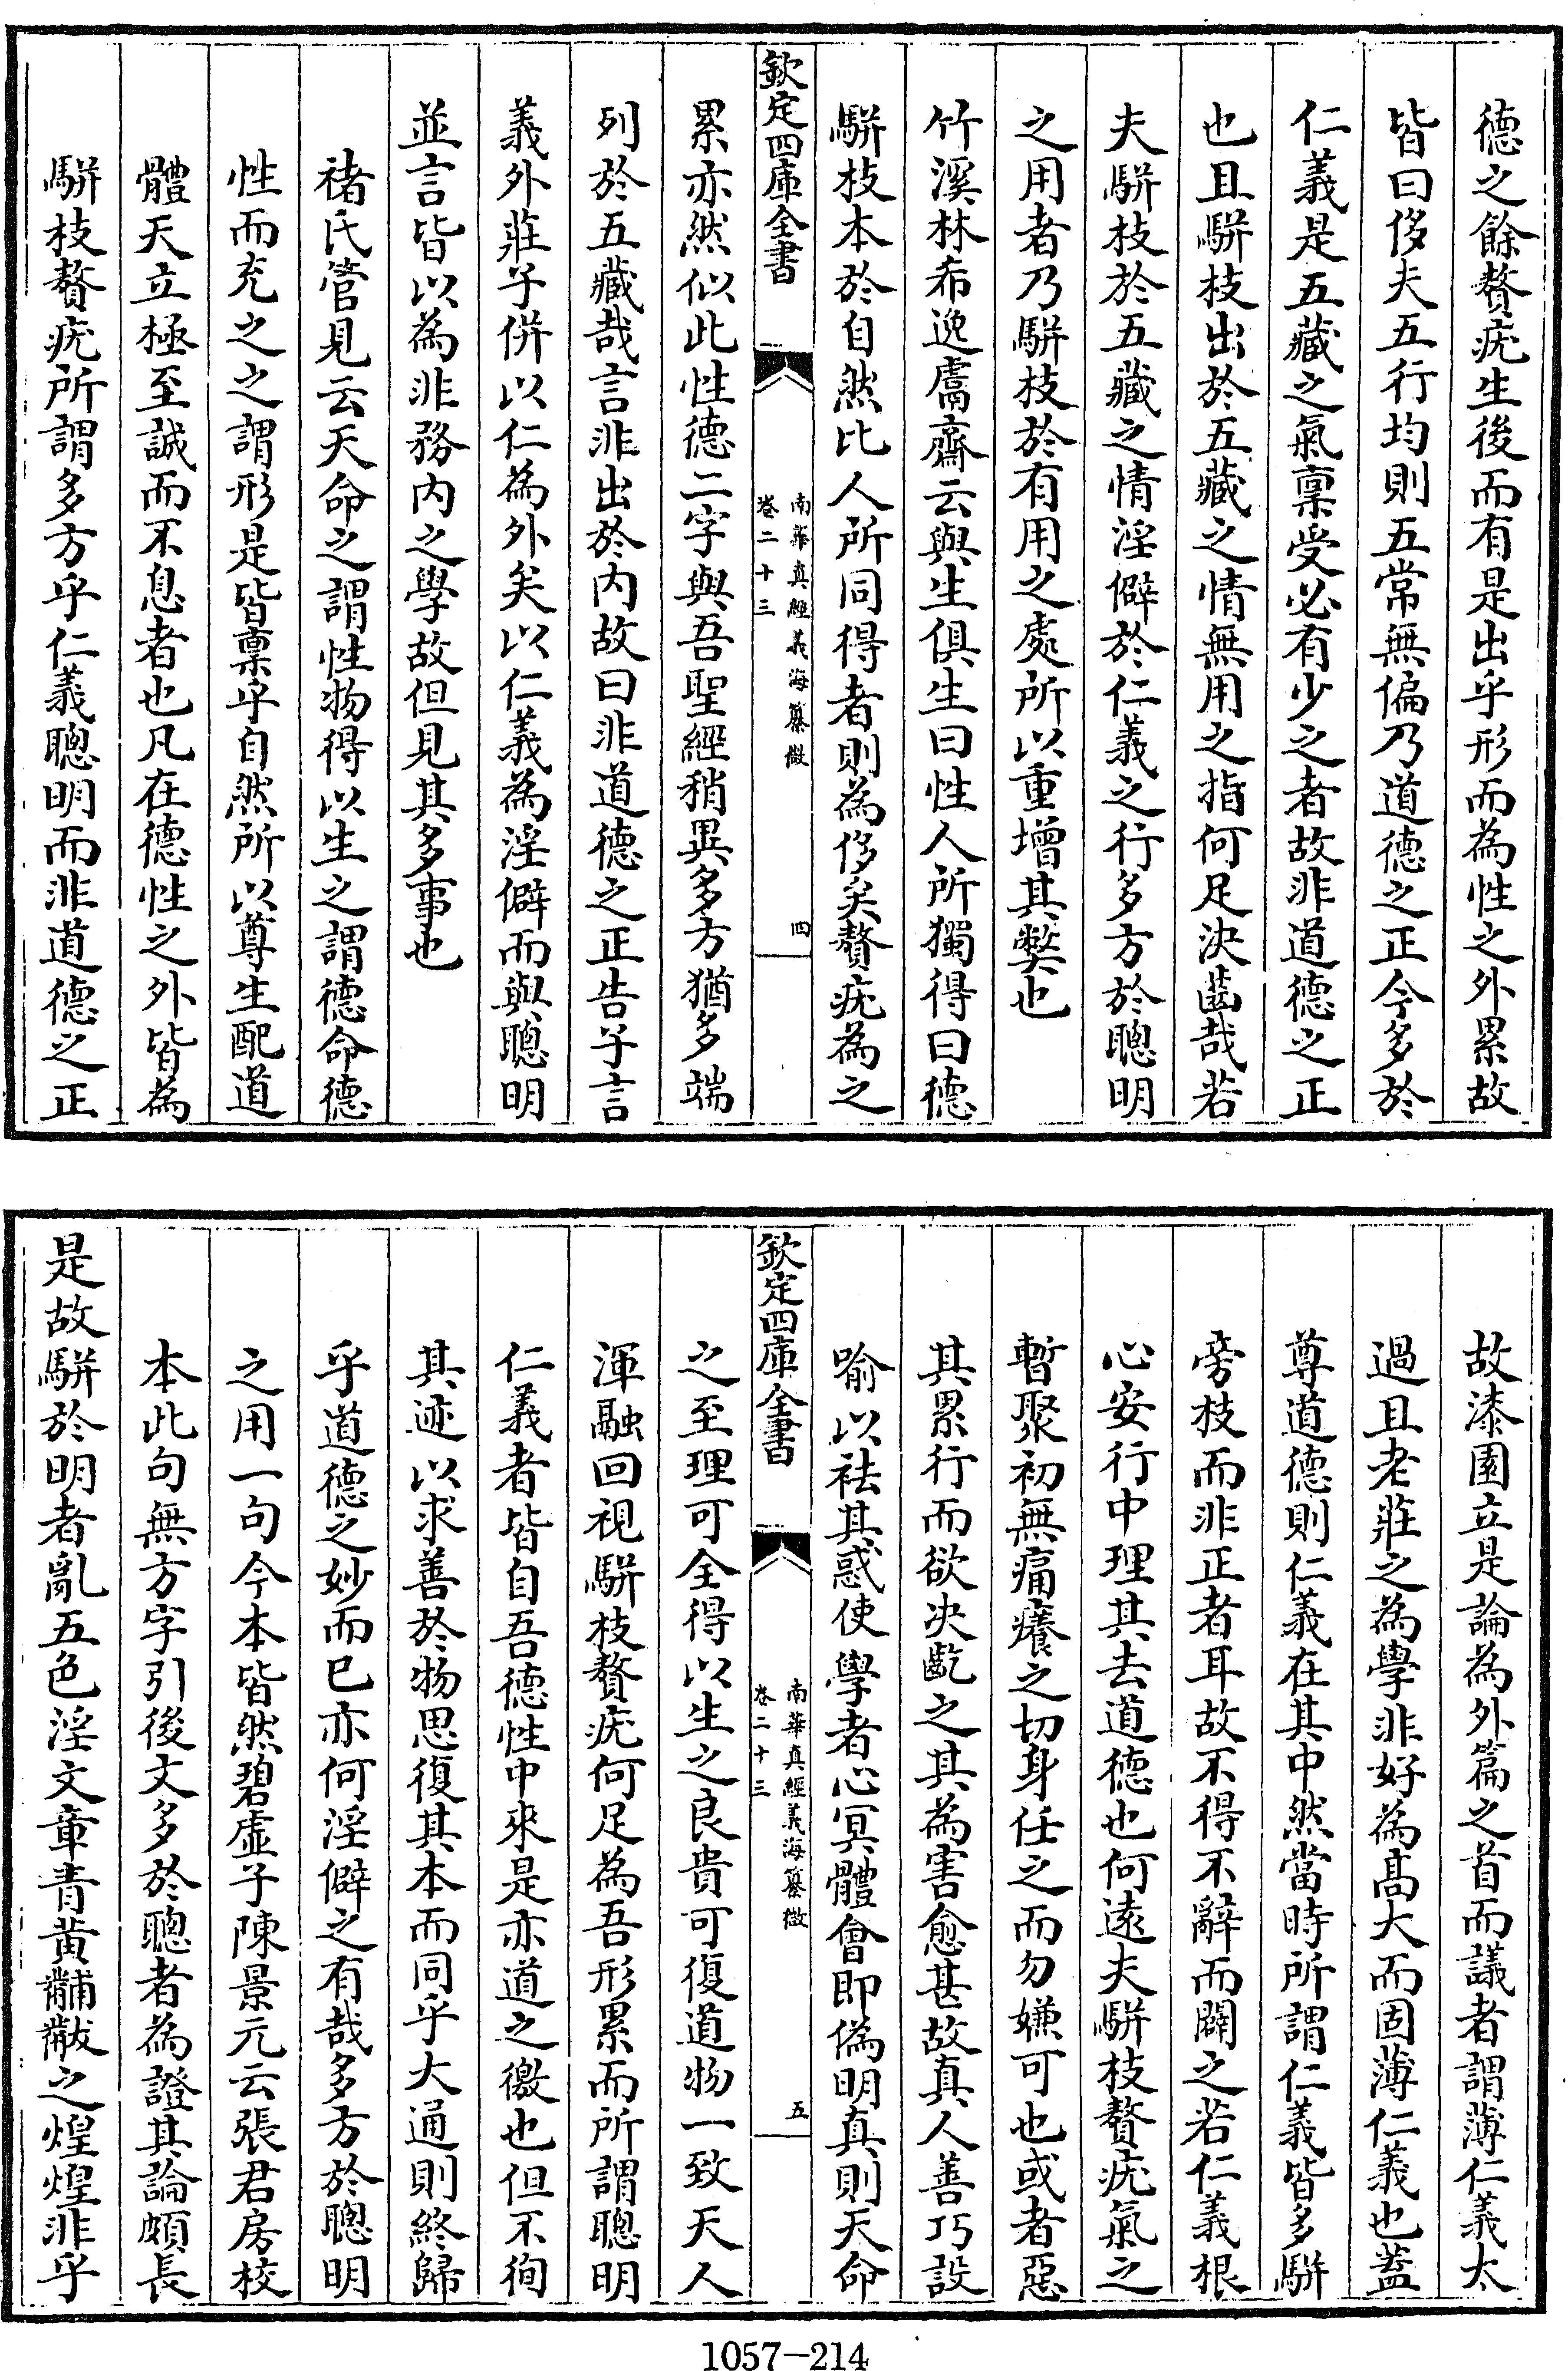 德之餘贅疣生後而有是出乎形而為性之外累故
皆曰侈夫五行均則五常無偏乃道德之正今多於
仁義是五藏之氣稟受必有少之者故非道德之正
也且駢枝出於五藏之情無用之指何足決齒哉若
夫駢枝於五藏之情淫僻於仁義之行多方於聰明
之用者乃駢枝於有用之處所以重增其弊也
竹溪林希逸鬳齋云與生俱生曰性人所獨得曰德
駢枝本於自然比人所同得者則為侈矣贅疣為之
欽定四庫全書
南華真經義海纂微
卷二十三
四
累亦然似此性德二字與吾聖經稍異多方猶多端
列於五藏哉言非出於內故曰非道德之正告子言
義外莊子併以仁為外矣以仁義為淫僻而與聰明
並言皆以為非務內之學故但見其多事也
禇氏管見云天命之謂性物得以生之謂德命德
性而充之之謂形是皆稟乎自然所以尊生配道
體天立極至誠而不息者也凡在德性之外皆為
駢枝贅疣所謂多方乎仁義聰明而非道德之正
故漆園立是論為外篇之首而議者謂薄仁義太
過且老莊之為學非好為高大而固薄仁義也蓋
尊道德則仁義在其中然當時所謂仁義皆多駢
旁枝而非正者耳故不得不辭而闢之若仁義根
心安行中理其去道德也何遠夫駢枝贅疣氣之
暫聚初無痛癢之切身任之而勿嫌可也或者惡
其累行而欲決齕之其為害愈甚故真人善巧設
喻以袪其惑使學者心冥體會即偽明真則天命
欽定四庫全書
南華真經義海纂微
卷二十三
五
之至理可全得以生之良貴可復道物一致天人
渾融回視駢枝贅疣何足為吾形累而所謂聰明
仁義者皆自吾德性中來是亦道之徼也但不徇
其迹以求善於物思復其本而同乎大通則終歸
乎道德之妙而已亦何淫僻之有哉多方於聰明
之用一句今本皆然碧虛子陳景元云張君房校
本此句無方字引後文多於聰者為證其論頗長
是故駢於明者亂五色淫文章青黃黼黻之煌煌非乎
1057-214